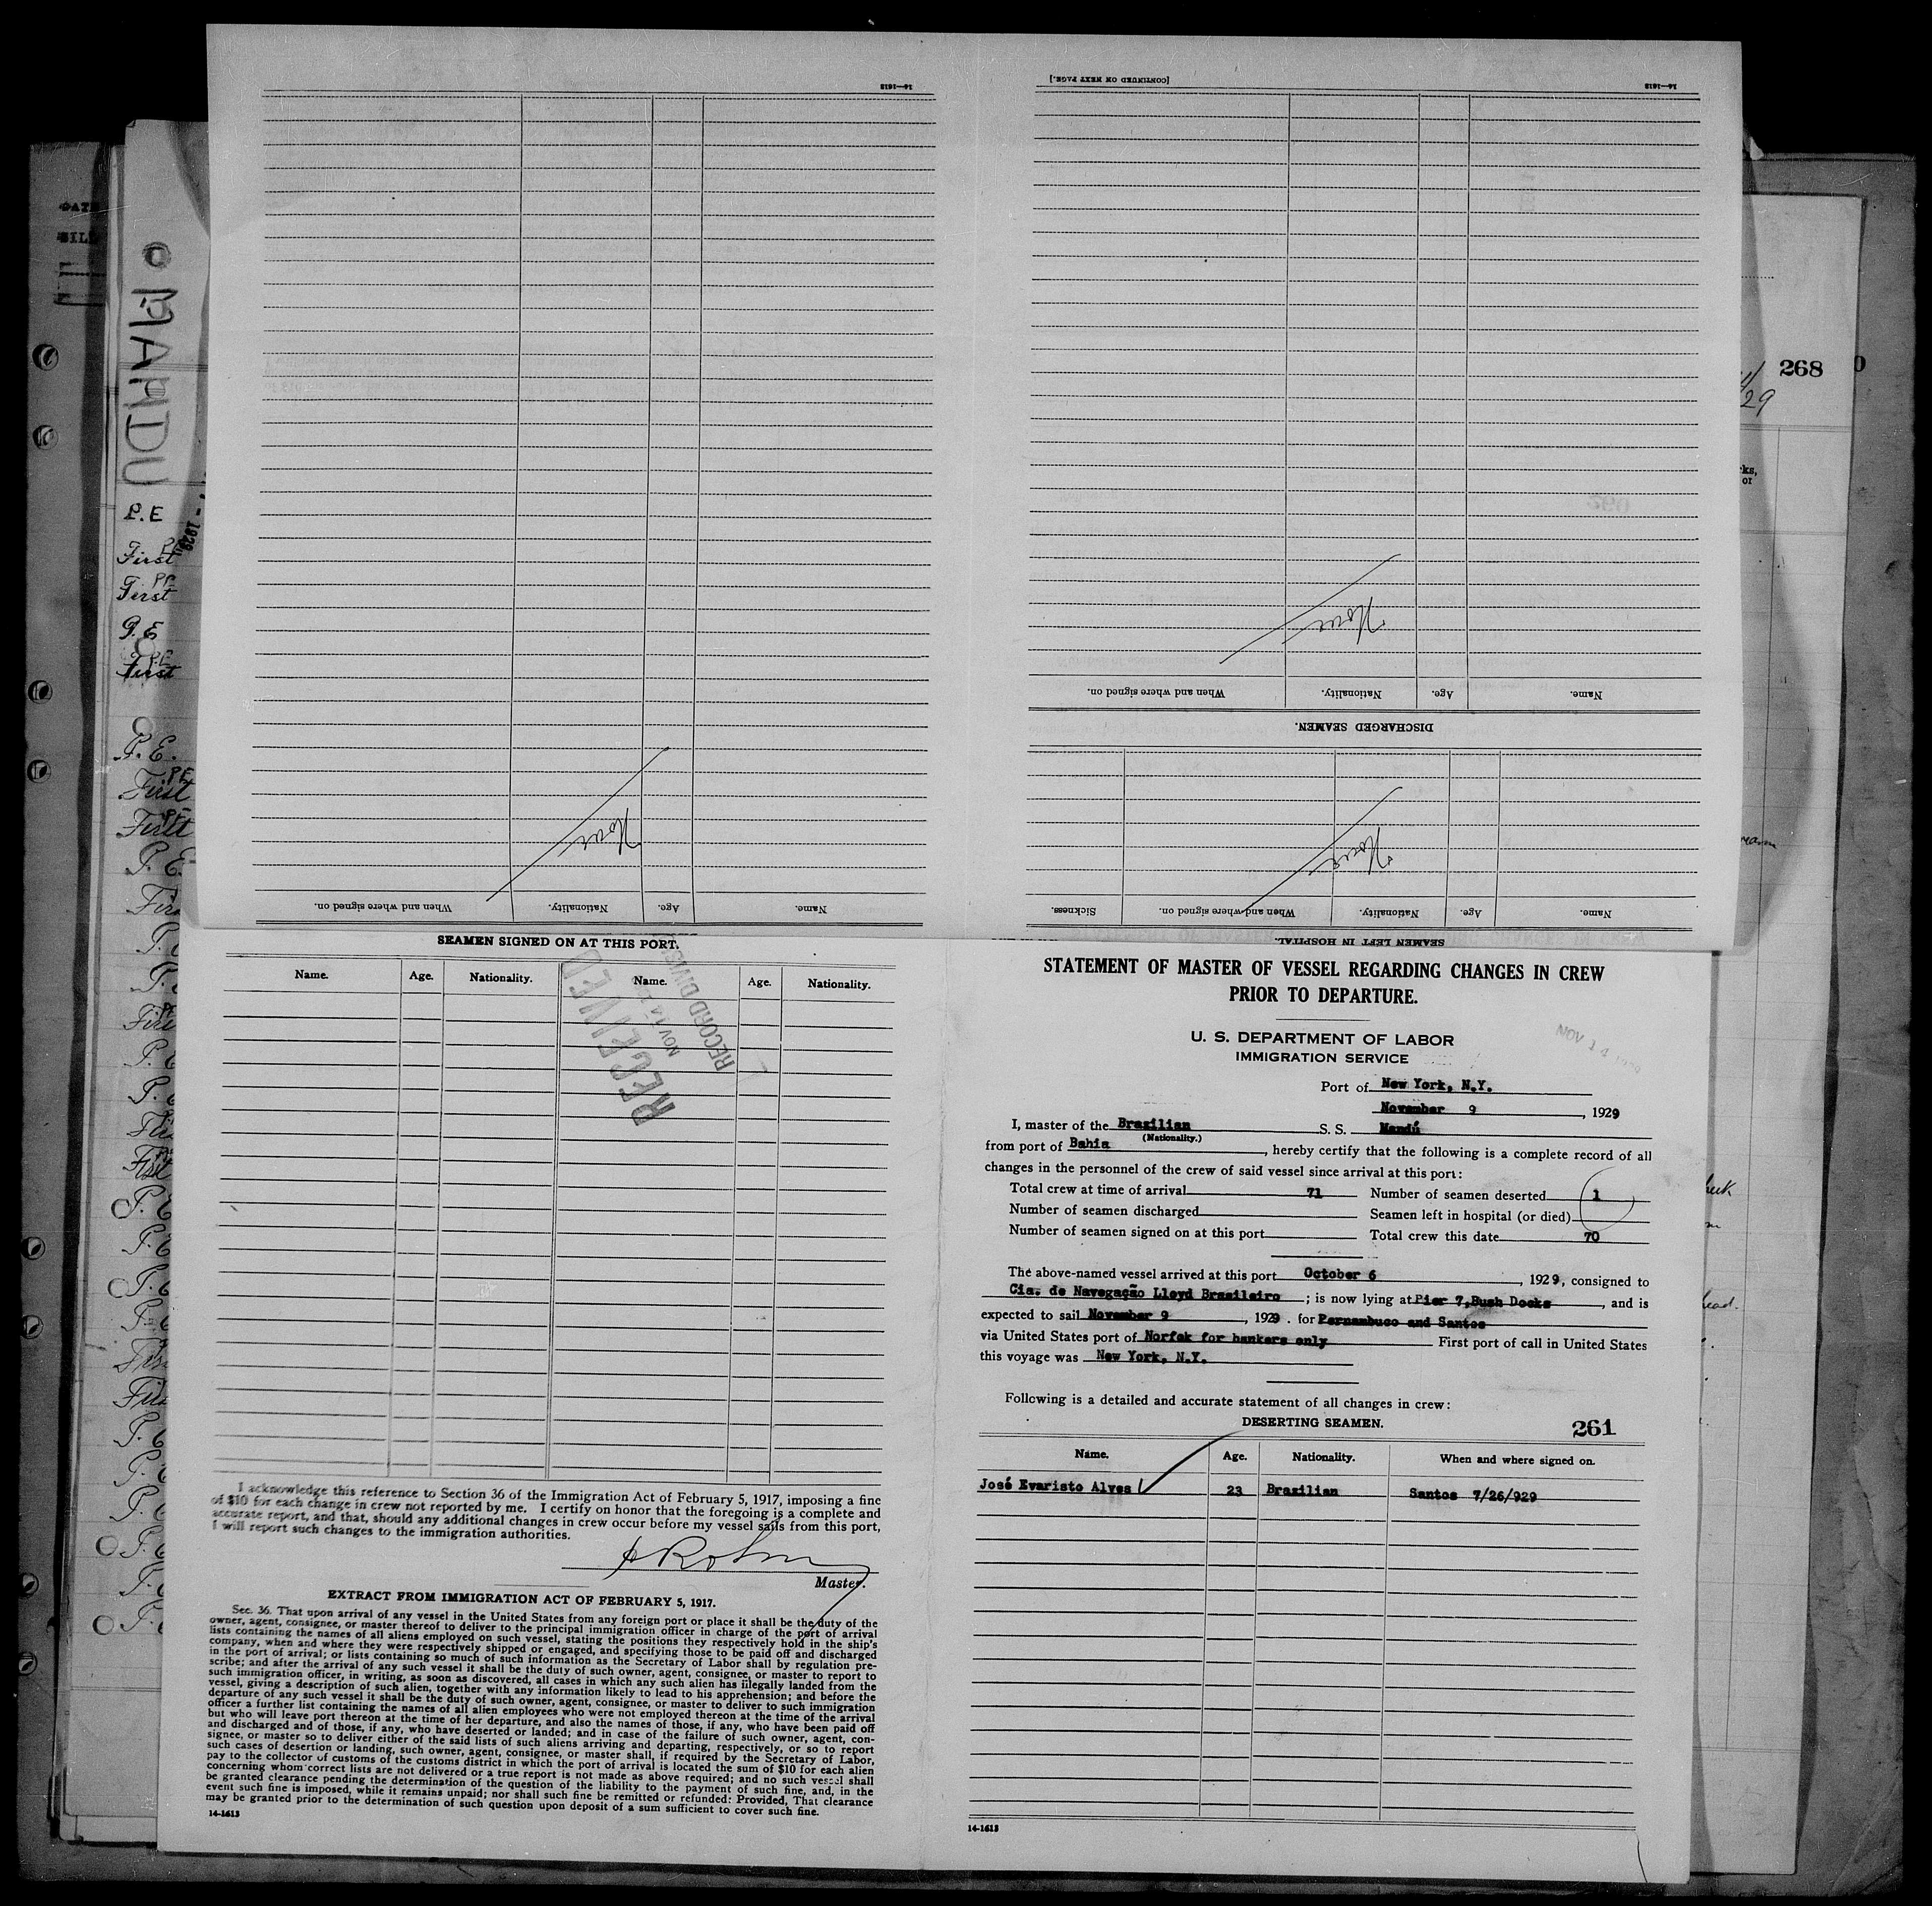 14—1613
[CONTINUED ON NEXT PAGE.]
14—1613
None
When and where signed on. Nationality. Age. Name.
DISCHARGED SEAMEN.
None
None
When and where signed on. Nationality. Age. Name.
Sickness. When and where signed on. Nationality. Age. Name.
SEAMEN LEFT IN HOSPITAL.
MANDU
P.E
First
First
P.E
First
P.E.
First
First
P.E
268
29
SEAMEN SIGNED ON AT THIS PORT.
Name. Age. Nationality. Name. Age. Nationality.
RECEIVED
NOV 14
RECORD DIVISION
I acknowledge this reference to Section 36 of the Immigration Act of February 5, 1917, imposing a fine
of $10 for each change in crew not reported by me. I certify on honor that the foregoing is a complete and
accurate report, and that, should any additional changes in crew occur before my vessel sails from this port,
I will report such changes to the immigration authorities.
Master.
EXTRACT FROM IMMIGRATION ACT OF FEBRUARY 5, 1917.
Sec. 36. That upon arrival of any vessel in the United States from any foreign port or place it shall be the duty of the
owner, agent, consignee, or master thereof to deliver to the principal immigration officer in charge of the port of arrival
lists containing the names of all aliens employed on such vessel, stating the positions they respectively hold in the ship's
company, when and where they were respectively shipped or engaged, and specifying those to be paid off and discharged
in the port of arrival; or lists containing so much of such information as the Secretary of Labor shall by regulation pre-
scribe; and after the arrival of any such vessel it shall be the duty of such owner, agent, consignee, or master to report to
such immigration officer, in writing, as soon as discovered, all cases in which any such alien has illegally landed from the
vessel, giving a description of such alien, together with any information likely to lead to his apprehension; and before the
departure of any such vessel it shall be the duty of such owner, agent, consignee, or master to deliver to such immigration
officer a further list containing the names of all alien employees who were not employed thereon at the time of the arrival
but who will leave port thereon at the time of her departure, and also the names of those, if any, who have been paid off
and discharged and of those, if any, who have deserted or landed; and in case of the failure of such owner, agent, con-
signee, or master so to deliver either of the said lists of such aliens arriving and departing, respectively, or so to report
such cases of desertion or landing, such owner, agent, consignee, or master shall, if required by the Secretary of Labor,
pay to the collector of customs of the customs district in which the port of arrival is located the sum of $10 for each alien
concerning whom correct lists are not delivered or a true report is not made as above required; and no such vessel shall
be granted clearance pending the determination of the question of the liability to the payment of such fine, and, in the
event such fine is imposed, while it remains unpaid; nor shall such fine be remitted or refunded: Provided, That clearance
may be granted prior to the determination of such question upon deposit of a sum sufficient to cover such fine.
14-1613
STATEMENT OF MASTER OF VESSEL REGARDING CHANGES IN CREW
PRIOR TO DEPARTURE.
U. S. DEPARTMENT OF LABOR
IMMIGRATION SERVICE
NOV 14
Port of New York, N.Y.
November 9, 1929
I, master of the Brazilian S. S. Mandú
(Nationality.)
from port of Bahia, hereby certify that the following is a complete record of all
changes in the personnel of the crew of said vessel since arrival at this port:
Total crew at time of arrival 71 Number of seamen deserted 1
Number of seamen discharged Seamen left in hospital (or died)
Number of seamen signed on at this port Total crew this date 70
The above-named vessel arrived at this port October 6, 1929, consigned to
Cia. de Navegação Lloyd Brasileiro; is now lying at Pier 7,Bush Docks, and is
expected to sail November 9, 1929. for Pernambuco and Santos
via United States port of Norfok for bankers only First port of call in United States
this voyage was New York, N.Y.
Following is a detailed and accurate statement of all changes in crew:
DESERTING SEAMEN.
261
Name. Age. Nationality. When and where signed on.
José Evaristo Alves 23 Brazilian Santos 7/26/929
14-1613